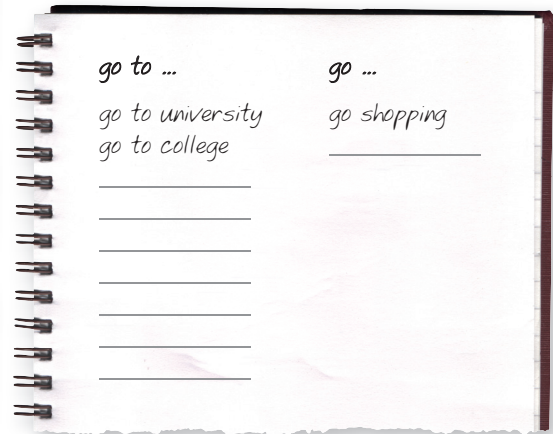 go to ...
go to university
go to college
go ...
go shopping